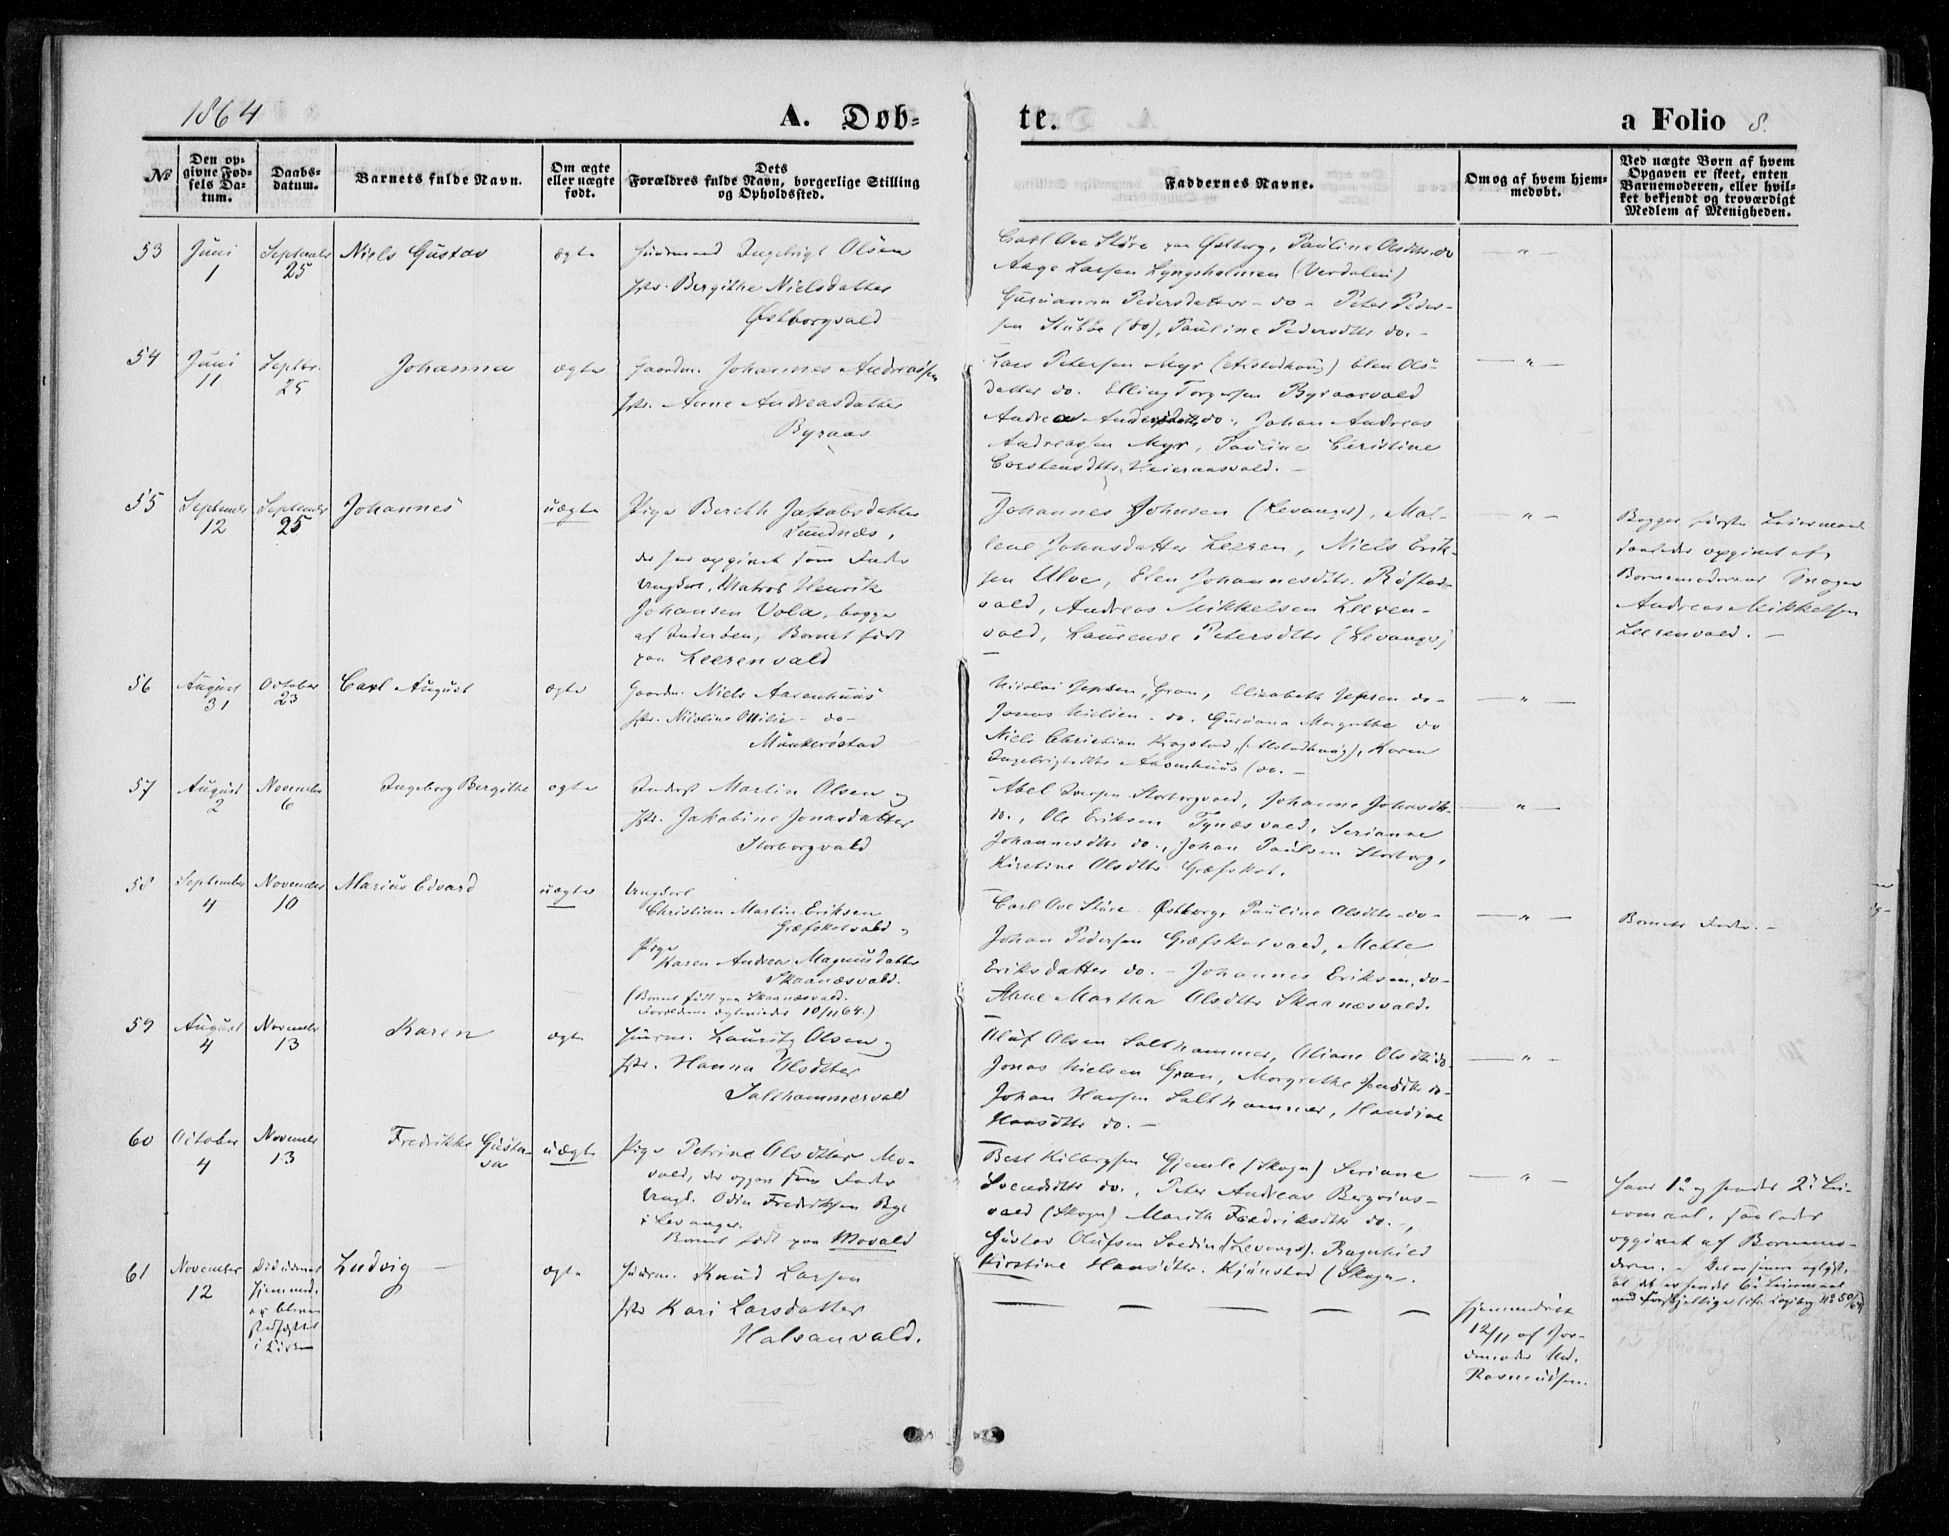 1864
A. Døb=
te.
a Folio 8.
No
Den op-
givne Fød-
sels Da-
tum.
Daabs-
datum.
Barnets fulde Navn.
Om ægte
eller uægte
født.
Dets
Forældres fulde Navn, borgerlige Stilling
og Opholdssted.
Faddernes Navne.
Om og af hvem hjem-
medøbt.
Ved uægte Børn af hvem
Opgaven er skeet, enten
Barnemoderen, eller hvil-
ket bekjendt og troværdigt
Medlem af Menigheden.
53
Juni
1
September
25
Niels Gustav
ægte
Huusmand Ingebrigt Olsen
Hstr. Bergithe Nielsdatter
Østborgvald
Carl Ove Støre paa Østborg, Pauline Olsdtr. do
Aage Larsen Lyngsholmen (Verdalen)
Gurianna Pedersdatter - do - Peter Peder-
sen Stubbe (do), Pauline Pedersdtr do. -
— " —
54
Juni
11
Septbr.
25
Johanna
ægte
Gaardm. Johannes Andreassen
Hstr. Anne Andreasdatter
Byraas
Lars Petersen Myr (Alstadhoug) Elen Ols-
datter do. Elling Torgersen Byraasvald
do. Johan Andreas
Andreassen Myr, Pauline Christine
— " —
55
September
12
September
25
Johannes
uægte
Pige Bereth Jakobsdatter
Sundnæs,
der har opgivet som Fader
Ungkarl, Matros Henrik
Johansen Vola, begge
af Inderøen, Barnet født
paa Leerenvald
Johannes Johnsen (Levanger), Mal-
lene Johnsdatter Leeren, Niels Erik-
sen Ulve, Elen Johannesdtr. Røstad-
vald, Andreas Mikkelsen Leeren-
vald, Laurense Petersdtr (Levanger)
— " —
Begges første Leiermaal
saaledes opgivet af
Barnemoderens Svoger
Andreas Mikkelsen
Leerenvald. -
56
August
31
October
23
Carl August
ægte
Gaardm. Niels Aasenhuus
Hstr. Nicoline Ottilie - do -
Munkerøstad
Nicolai Jepsen, Gran, Elizabeth Jepsen do -
Jonas Nielsen - do. Guriana Margrethe do
Niels Christian Kragstad, (Alstadhoug), Karen
Ingebrigtsdtr Aasenhuus (do. -
— " —
57
August
2
November
6
Ingeborg Bergithe
ægte
Inderst Martin Olsen og
Hstr. Jakobine Jonasdatter
Storborgvald
Abel Iversen Storborgvald, Johanna Johnsdtr.
do., Ole Eriksen Tynæsvald, Serianne
Johannesdtr do., Johan Paulsen Storborg,
Kirstine Olsdtr Græfskot.
— " —
58
September
4
November
10
Marius Edvard
uægte
Ungkarl
Christian Martin Eriksen
Græfskotvald og
Pige
Karen Andrea Magnusdatter
Skaanæsvald.
(Barnet født paa Skaanæsvald.
Forældrene ægteviede 10/11 64.)
Carl Ove Støre Østborg, Pauline Olsdtr - do -
Johan Pedersen Græfskotvald, Mette
Eriksdatter do. - Johannes Eriksen, do -
Anne Martha Olsdtr Skaanæsvald.
— " —
Barnets Fader. -
59
August
4
November
13
Karen
ægte
Huusm. Lauritz Olsen og
Hstr. Hanna Olsdtter
Salthammervald
Oluf Olsen Salthammer, Oliane Olsdtr do.
Jonas Nielsen Gran, Morgrethe Jensdtr do -
Johan Hansen Salthammer, Hansine
Hansdtr do. -
— " —
60
October
4
November
13
Fredrikke Gusta-
va
uægte
Pige Petrine Olsdtter Mo-
vald, der opgav som Fader
Ungk. Odin Fredriksen Bye
i Levanger.
Barnet født paa Movald
Gjemle (Skogn) Seriane
Svendsdtr do., Peter Andreas Bergvins-
vald (Skogn) Marith Fredriksdtr do. -,
Gustav Olufsen Svedin (Levanger). Ragnhild
Kirstine Hansdtr. Kjønstad (Skogn.
— " —
hans 1ste og hendes 2det Lei-
ermaal, saaledes
opgivet af Barnemo-
deren. - Det er senere oplyst,
at det er hendes 6te Leiermaal
61
November
12
Ludvig —
ægte
Huusm. Knud Larsen
Hstr Kari Larsdatter
Halsanvald.
— — — — —
Hjemmedøbt
12/11 af Jor-
demoder
Rasmussen.